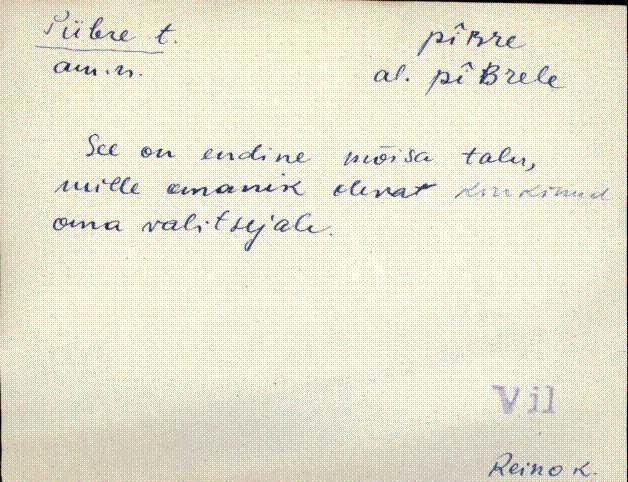 Piibre t.
pîʙre
am.n.
al. pîʙrele
See on endine mõisa talu,
mille omanik olevat kinkinud
oma valitsejale.
Vil
Reino K.